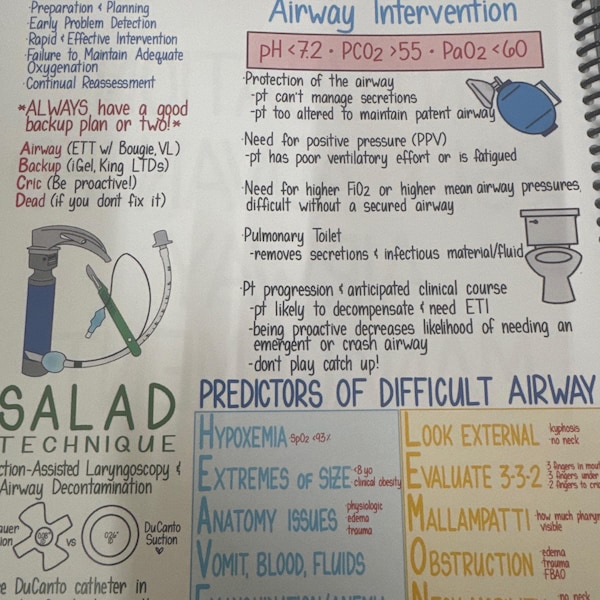 ·Preparation & Planning
·Early Problem Detection
·Rapid & Effective Intervention
·Failure to Maintain Adequate
Oxygenation
·Continual Reassessment
*ALWAYS have a good
backup plan or two!*
Airway (ETT w/ Bougie, VL)
Backup (iGel, King LTDs)
Cric (Be proactive!)
Dead (if you don't fix it)
Airway Intervention
pH <7.2 · PCO2 >55 · PaO2 <60
·Protection of the airway
-pt can't manage secretions
-pt too altered to maintain patent airway
·Need for positive pressure (PPV)
-pt has poor ventilatory effort or is fatigued
·Need for higher FiO2 or higher mean airway pressures,
difficult without a secured airway
·Pulmonary Toilet
-removes secretions & infectious material/fluid
·Pt progression & anticipated clinical course
-pt likely to decompensate & need ETI
-being proactive decreases likelihood of needing an
emergent or crash airway
-don't play catch up!
SALAD
TECHNIQUE
ction-Assisted Laryngoscopy &
Airway Decontamination
auer
ion
vs
DuCanto
Suction
e DuCanto catheter in
PREDICTORS OF DIFFICULT AIRWAY
HYPOXEMIA ·SpO2 <93%
EXTREMES OF SIZE ·<8 yo
·clinical obesity
ANATOMY ISSUES ·physiologic
·edema
·trauma
VOMIT, BLOOD, FLUIDS
LOOK EXTERNAL ·kyphosis
·no neck
EVALUATE 3-3-2 ·3 fingers in mou
·3 fingers under
·2 fingers to
MALLAMPATTI ·how much phary
visible
OBSTRUCTION ·edema
·trauma
·FBAO
·no neck